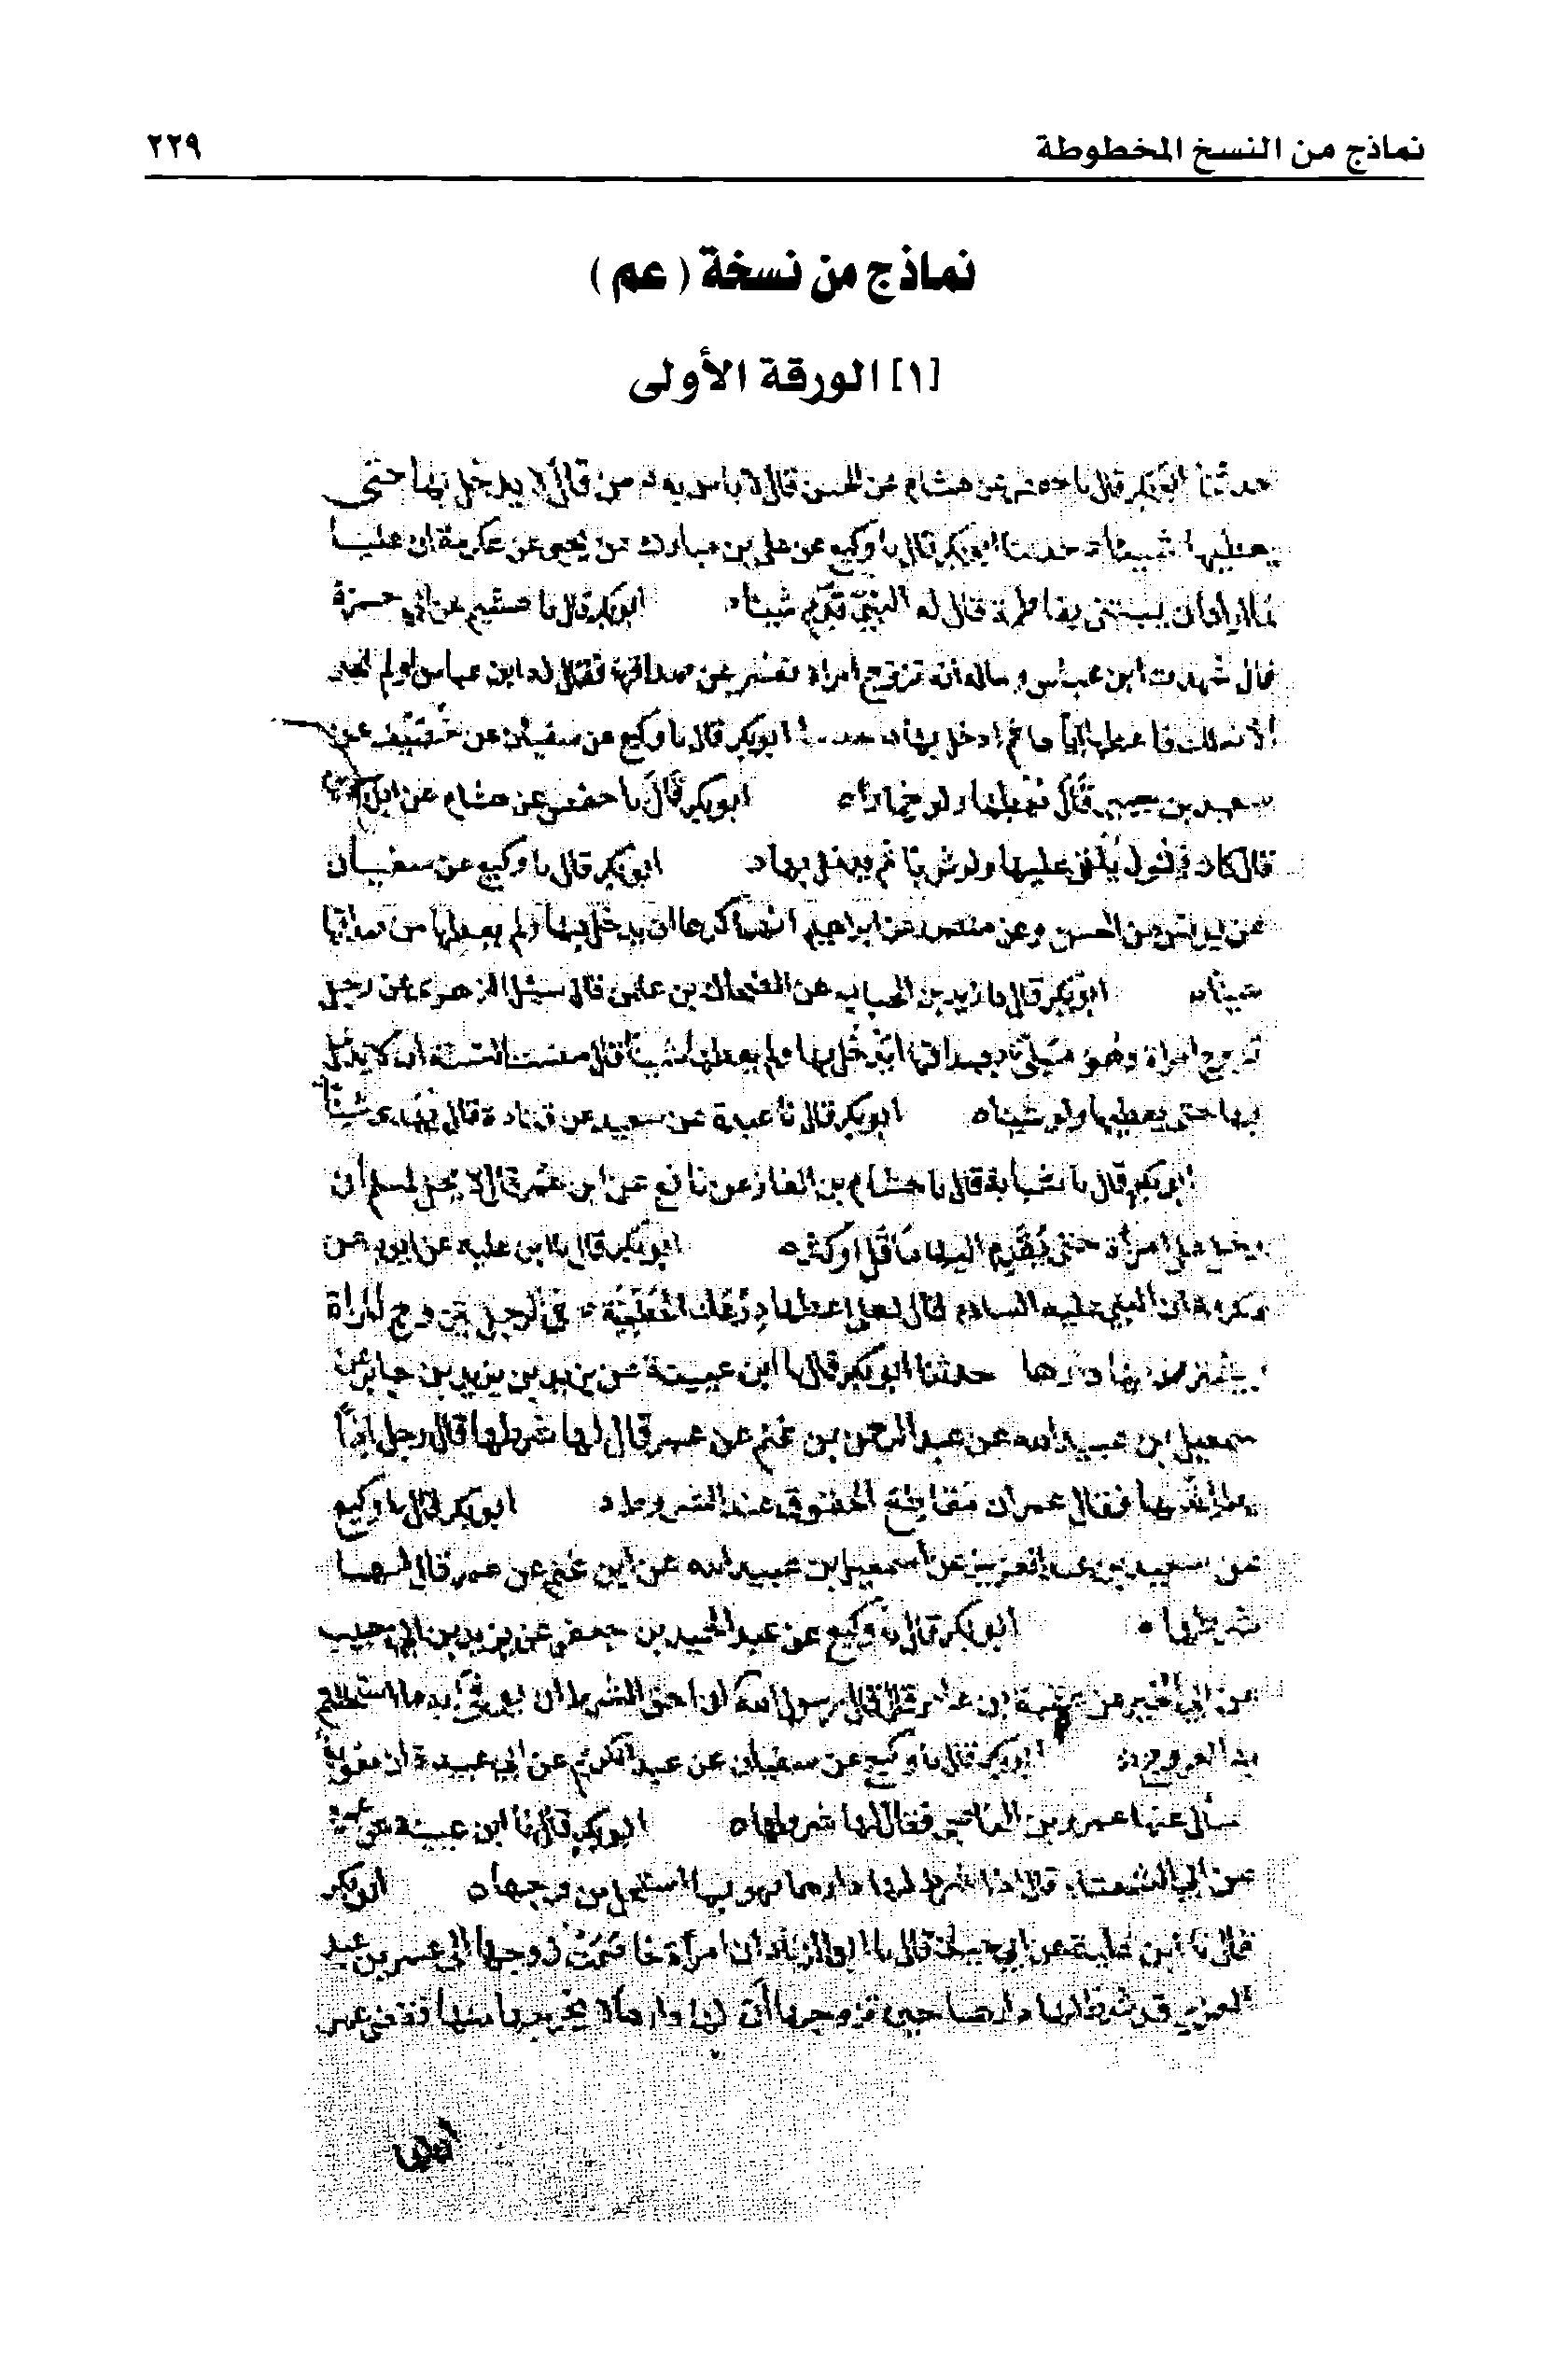 نماذج من النسخ المخطوطة
٢٢٩
نماذج من نسخة (عم)
[١] الورقة الأولى
حدثنا ابو بكر قال نا حفص عن هشام عن الحسن قال لا باس به ه من قال لا يدخل بها حتى
يعطيها شيئا ه حدثنا ابو بكر قال نا وكيع عن علي بن مبارك عن يحيى عن عكرمة ان عليا
لما اراد ان يبتني بفاطمة قال له النبي قدم شيئا ه ابو بكر قال نا هشيم عن ابي حمزة
قال شهدت ابن عباس وساله انه تزوج امراة فعسر عن صداقها فقال له ابن عباس ان لم تجد
الا نعلك فاعطها اياها ثم ادخل بها ه ابو بكر قال نا وكيع عن سفيان عن خصيف عن
سعيد بن جبير قال تعطها ولو خمارا ه ابو بكر قال نا حفص عن هشام عن
قال كان يقول يلقى عليها ولو ثوبا ثم يدخل بها ه ابو بكر قال نا وكيع عن سفيان
عن يونس عن الحسن وعن منصور عن ابراهيم انهما كرها ان يدخل بها ولم يعطها من صداقها
شيئا ه ابو بكر قال نا زيد بن الحباب عن الضحاك بن عثمن قال سئل الزهري عن رجل
تزوج امراة وهو ملي بصداقها ايدخل بها ولم يعطها شيئا قال مضت السنة ان لا يدخل
بها حتى يعطيها ولو شيئا ه ابو بكر قال نا عبدة عن سعيد عن قتادة قال يهدي شيئا
ابو بكر قال نا شبابة قال نا هشام بن الغاز عن نافع عن ابن عمر قال لا يحل لمسلم ان
يدخل على امرأة حتى يقدم اليها ما قل او كثر ه ابو بكر قال نا ابن علية عن ايوب عن
عكرمة ان النبي عليه السلام قال لعلي اعطها درعك الحطمية ه في الرجل يتزوج المراة
يشترط لها دارها حدثنا ابو بكر قال نا ابن عيينة عن يزيد بن يزيد بن جابر عن
اسمعيل بن عبيد الله عن عبد الرحمن بن غنم عن عمر قال لها شرطها قال رجل اذا
يطلقنها فقال عمر ان مقاطع الحقوق عند الشروط ه ابو بكر قال نا وكيع
عن سعيد بن عبد العزيز عن اسمعيل بن عبيد الله عن ابن غنم عن عمر قال لها
شرطها ه ابو بكر قال نا وكيع عن عبد الحميد بن جعفر عن يزيد بن ابي حبيب
عن ابي الخير عن عقبة ابن عامر قال قال رسول الله ان احق الشرط ان يوفى به ما استحللتم
به الفروج ه ابو بكر قال نا وكيع عن سفيان عن عبد الكريم عن ابي عبيدة ان معوية
سأل عنها عمرو بن العاصي فقال لها شرطها ه ابو بكر قال نا ابن عيينة عن
عن ابي الشعثاء قال اذا شرط لها دارها فهو بما استحل من فرجها ه ابو بكر
قال نا ابن علية عن قال نا ابو الزناد ان امرأة خاصمت زوجها الى عمر بن عبد
العزيز قد شرط لها دارها حين تزوجها ان لها دارها لا يخرجها منها فقضى عمر